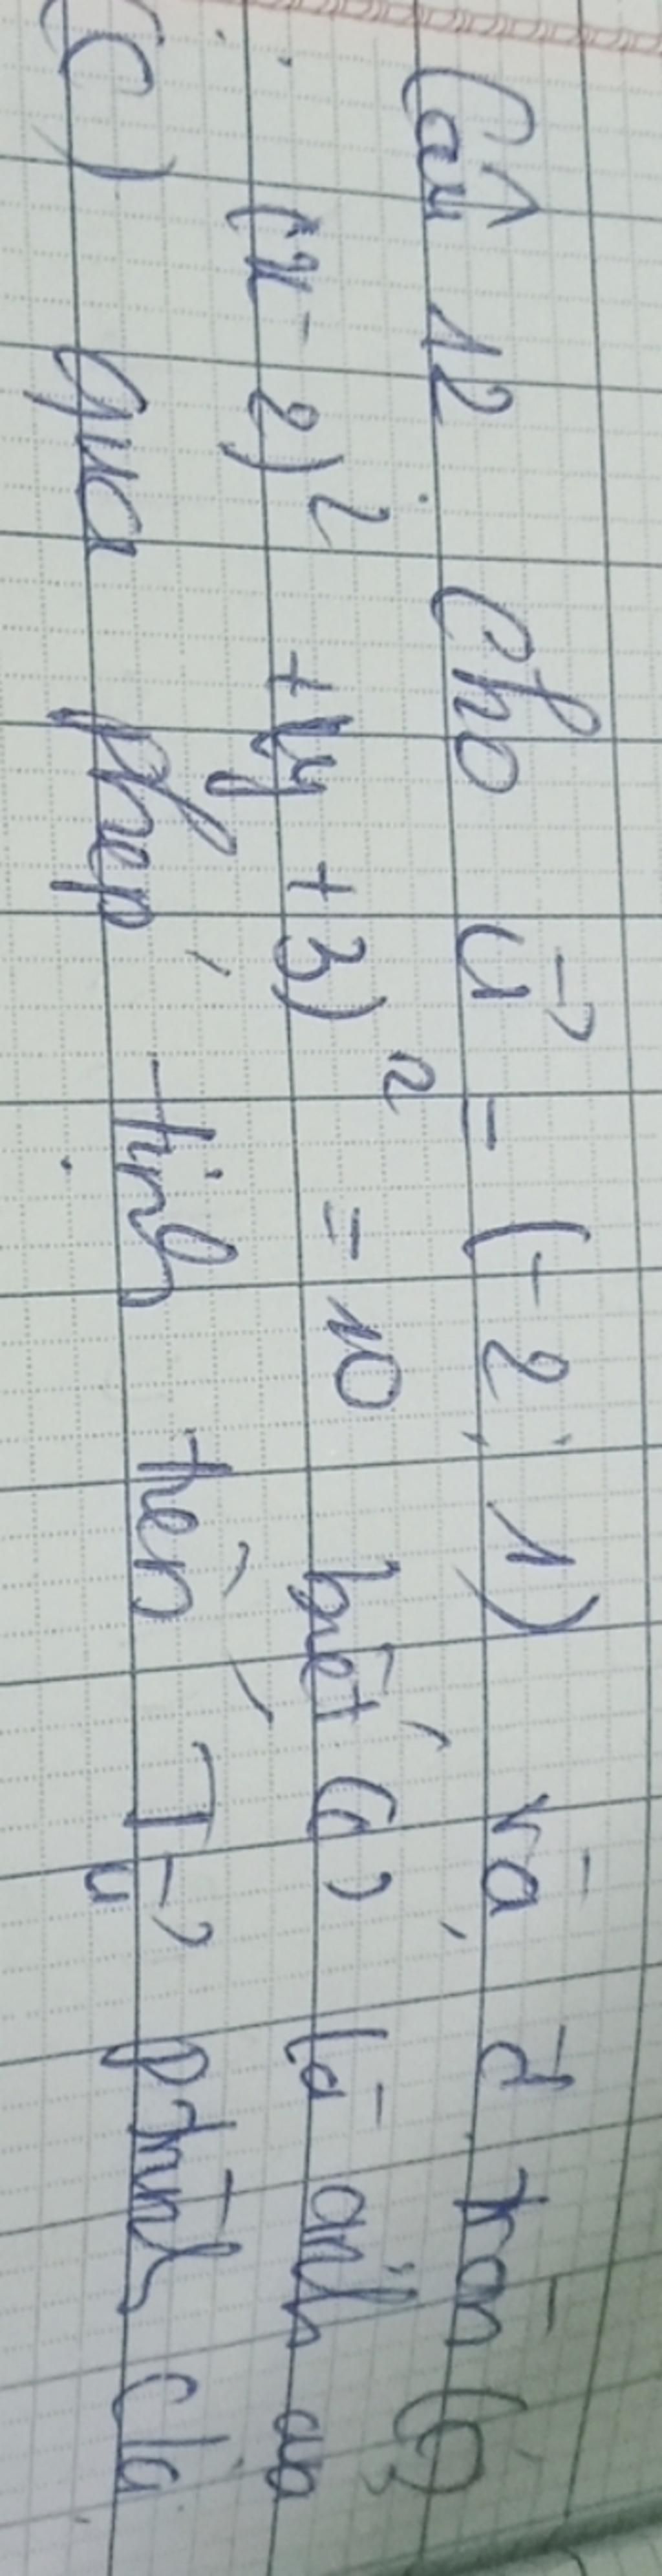 Câu 12 Cho u⃗ = (-2; 1) và đ tròn (C)
(x - 2)² + (y + 3)² = 10 biết (C) là ảnh của
(C) qua phép tịnh tiến T u⃗ ptrình (C) là